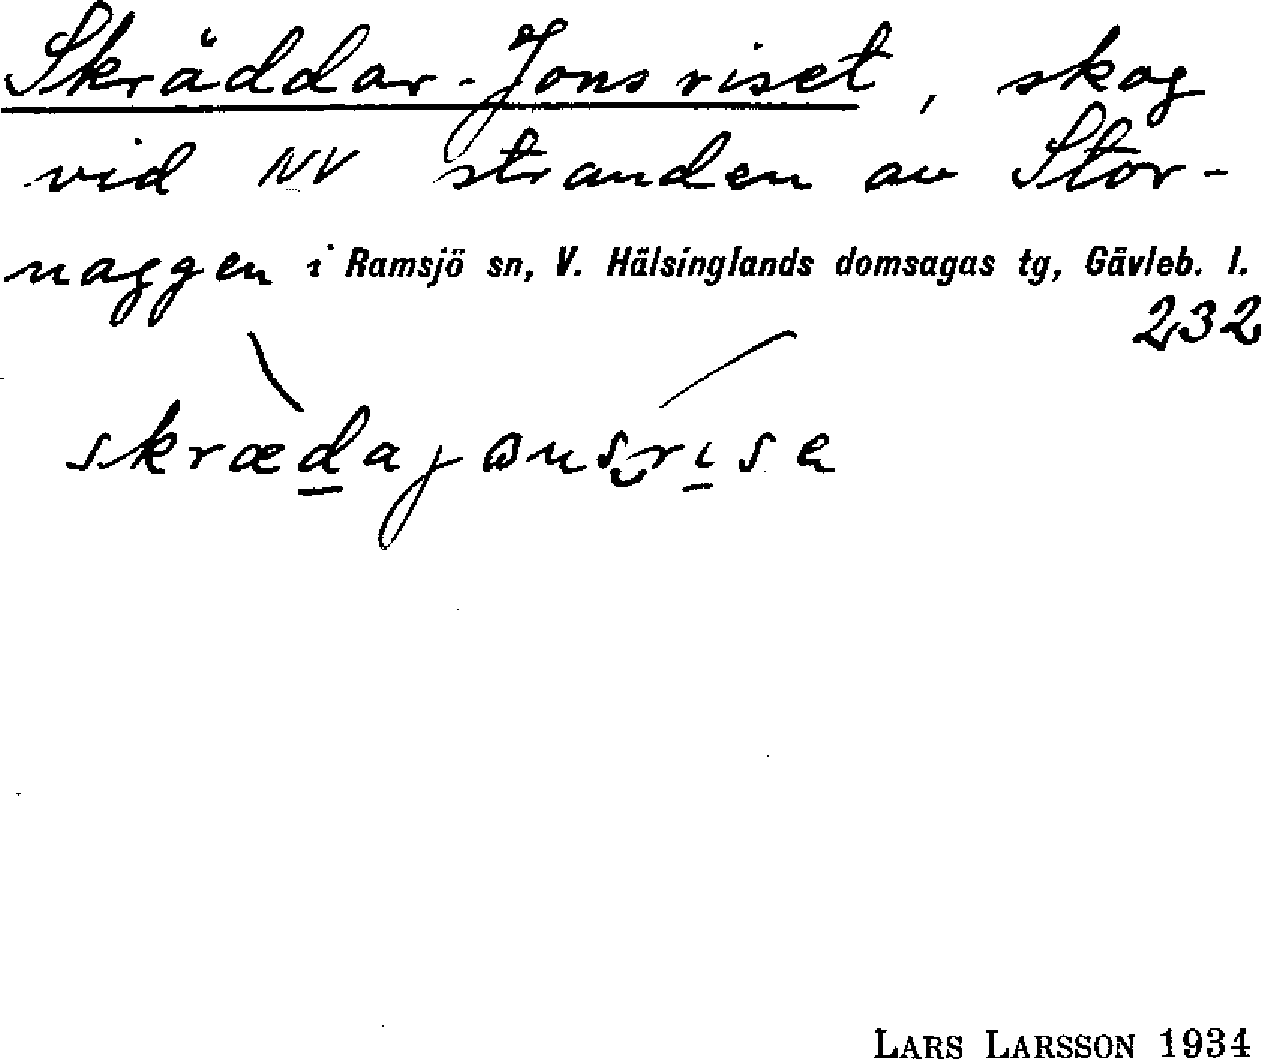 Skräddar-Jonsriset, skog
vid NV stranden av Stor-
naggen i Ramsjö sn, V. Hälsinglands domsagas tg, Gävleb. l.
232
skræd̲ajɷnsrı̲sa
LARS LARSSON 1934